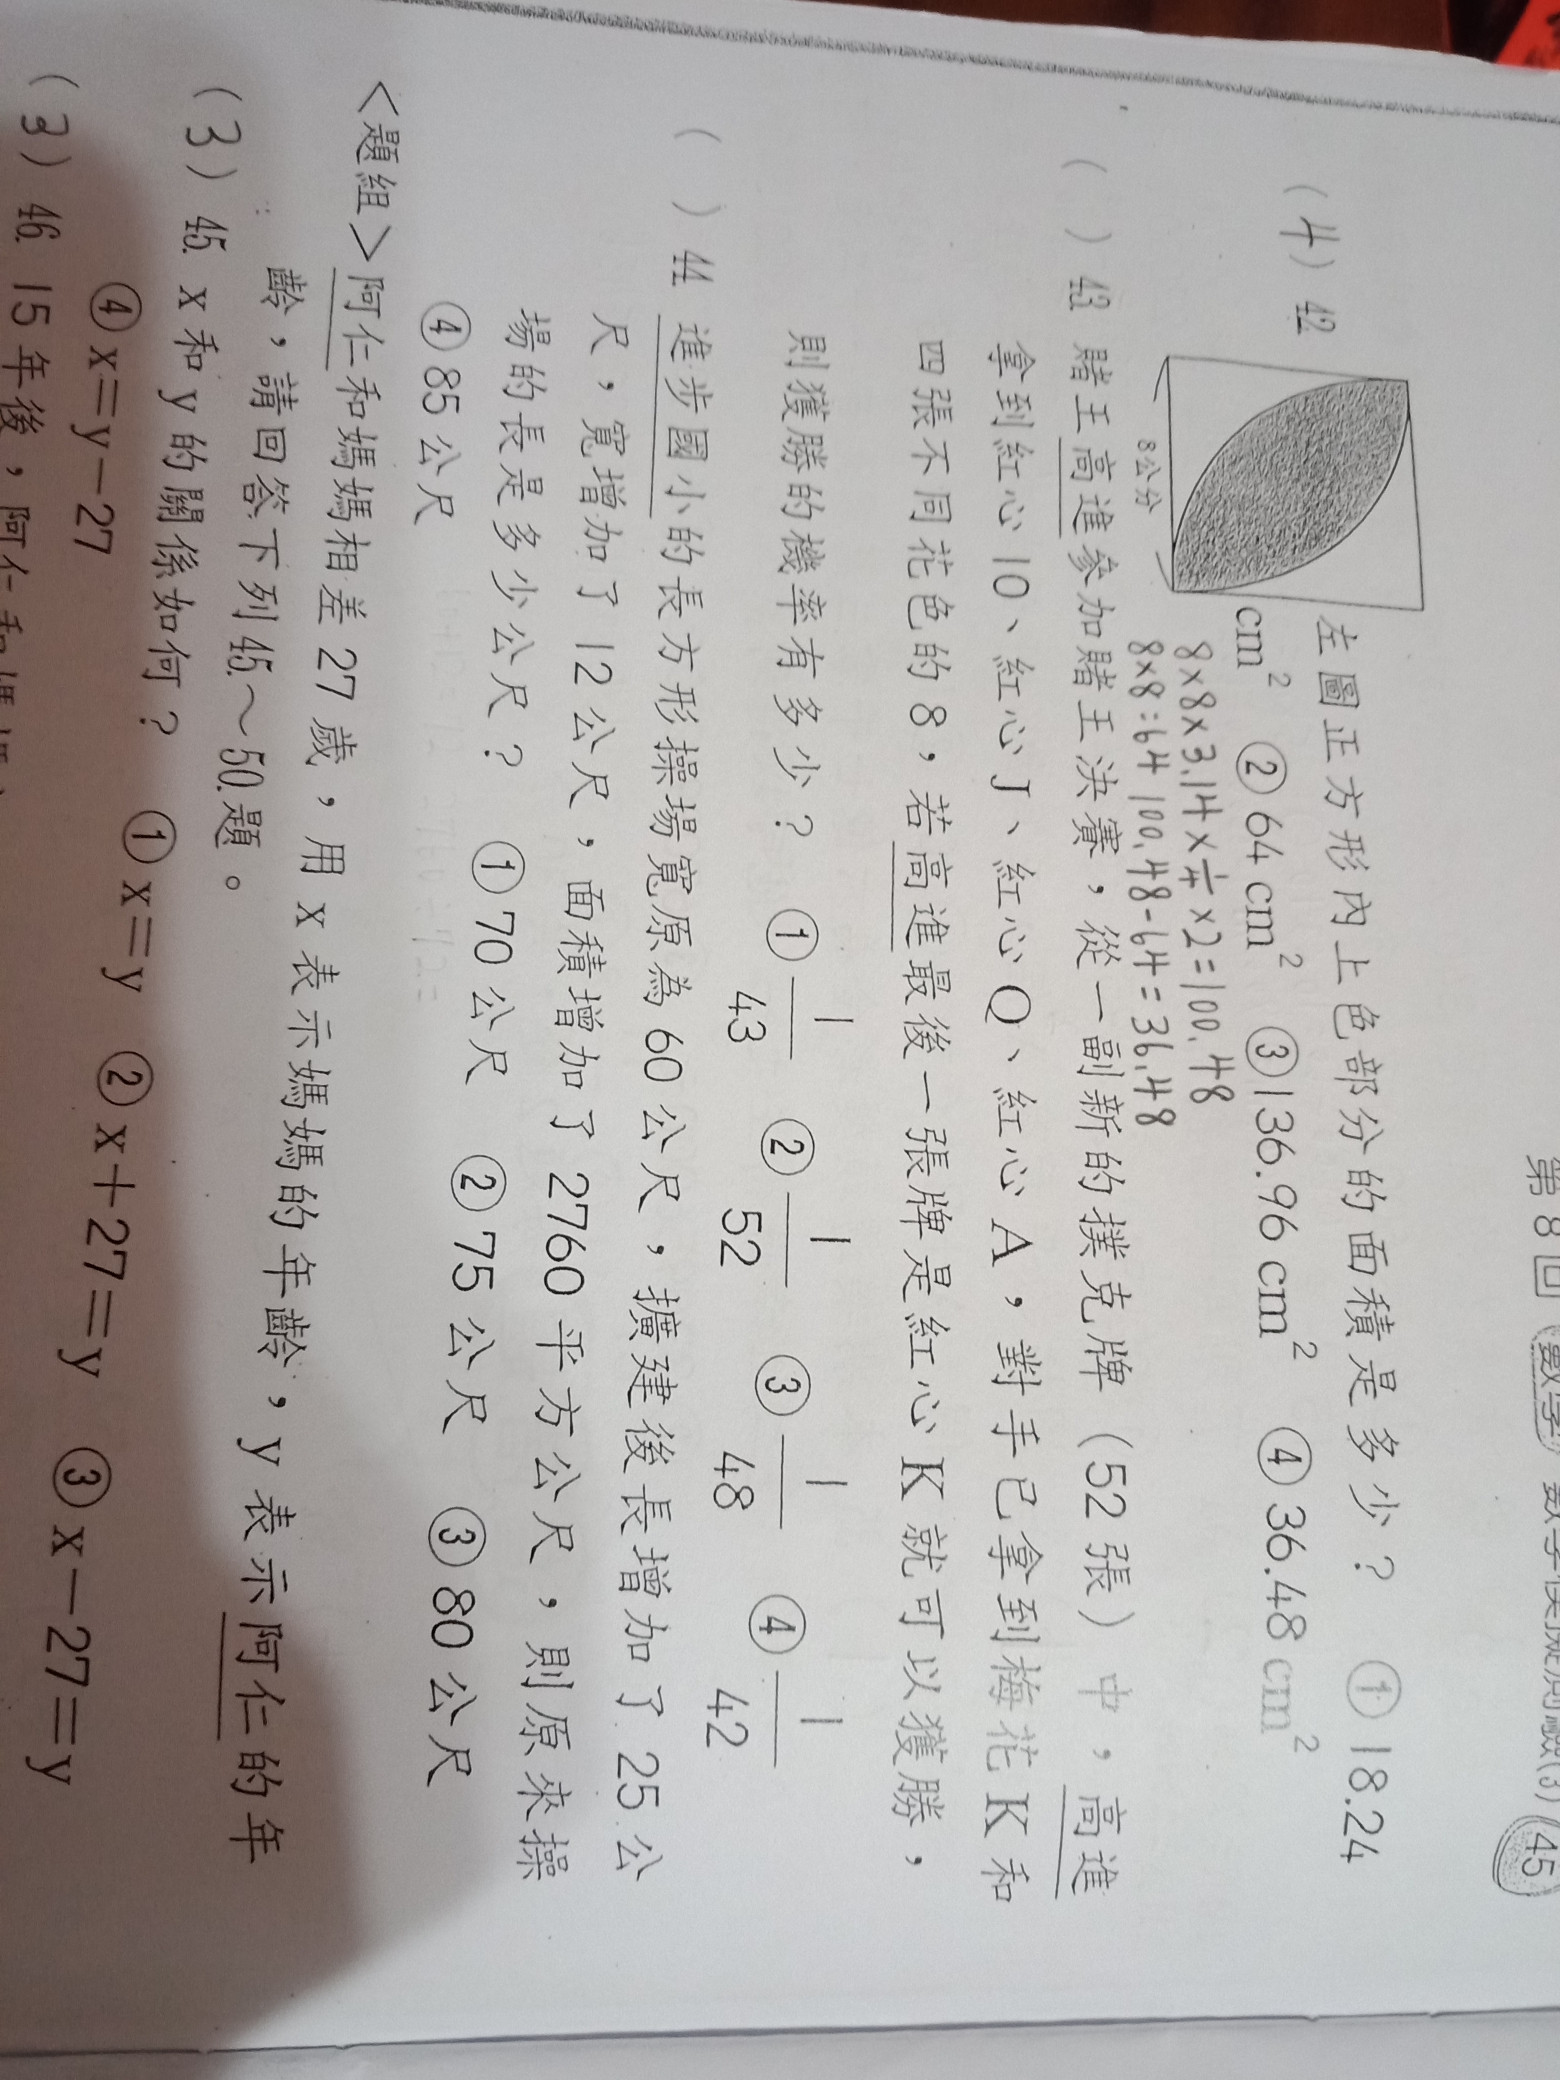 第8回 數學 (3) 45
(4) 42. 左圖正方形內上色部分的面積是多少？ ①18.24
cm² ②64 cm² ③136.96 cm² ④36.48 cm²
8公分
8×8×3.14×1/4×2=100.48
8×8=64 100.48-64=36.48
( ) 43. 賭王高進參加賭王決賽，從一副新的撲克牌（52張）中，高進
拿到紅心10、紅心J、紅心Q、紅心A，對手已拿到梅花K和
四張不同花色的8，若高進最後一張牌是紅心K就可以獲勝，
則獲勝的機率有多少？ ①1/43 ②1/52 ③1/48 ④1/42
( ) 44. 進步國小的長方形操場寬原為60公尺，擴建後長增加了25公
尺，寬增加了12公尺，面積增加了2760平方公尺，則原來操
場的長是多少公尺？ ①70公尺 ②75公尺 ③80公尺
④85公尺
<題組>阿仁和媽媽相差27歲，用x表示媽媽的年齡，y表示阿仁的年
齡，請回答下列45.～50.題。
(3) 45. x和y的關係如何？ ①x=y ②x+27=y ③x-27=y
④x=y-27
(3) 46. 15年後，阿仁和媽